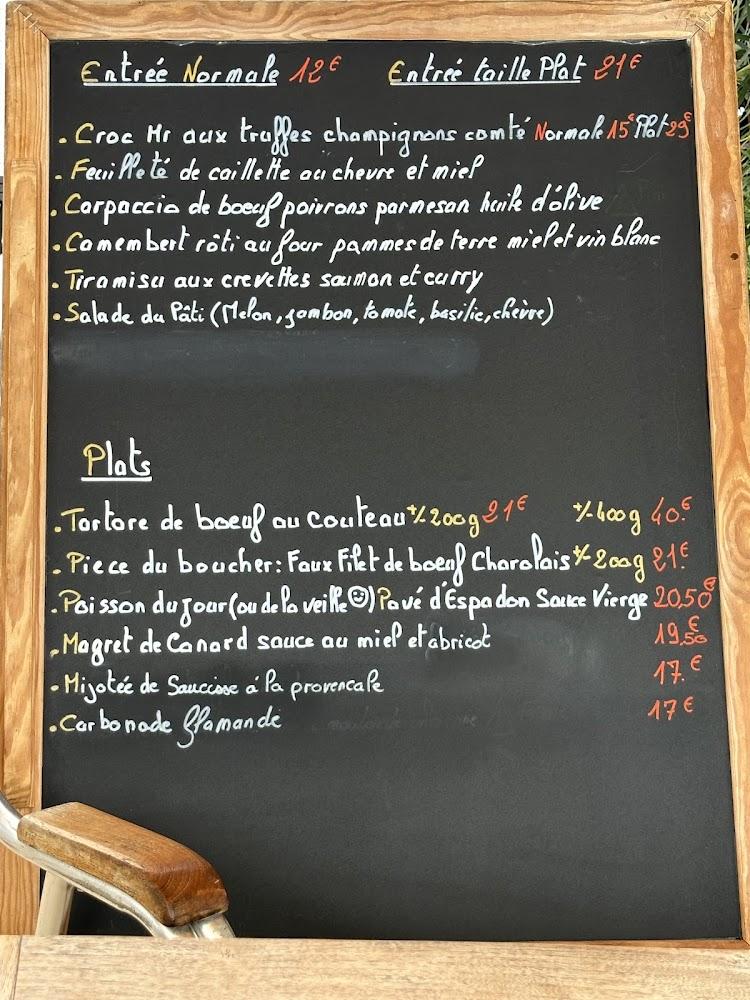 Entrée Normale 12€ Entrée taille Plat 21€
. Croc Mr aux truffes champignons comté Normale 15€ Plat 29€
. Feuilleté de caillette au chevre et miel
. Carpaccio de boeuf poivrons parmesan huile d'olive
. Camembert rôti au four pommes de terre miel et vin blanc
. Tiramisu aux crevettes saumon et curry
. Salade du Pâti (Melon, jambon, tomate, basilic, chèvre)
Plats
. Tartare de boeuf au couteau +/- 200g 21€ +/- 400g 40.€
. Piece du boucher: Faux Filet de boeuf Charolais +/- 200g 21.€
. Poisson du jour (ou de la veille ☺) Pavé d'Espadon Sauce Vierge 20,50€
. Magret de Canard sauce au miel et abricot 19,50€
. Mijotée de Saucisse à la provencale 17.€
. Carbonade flamande 17€